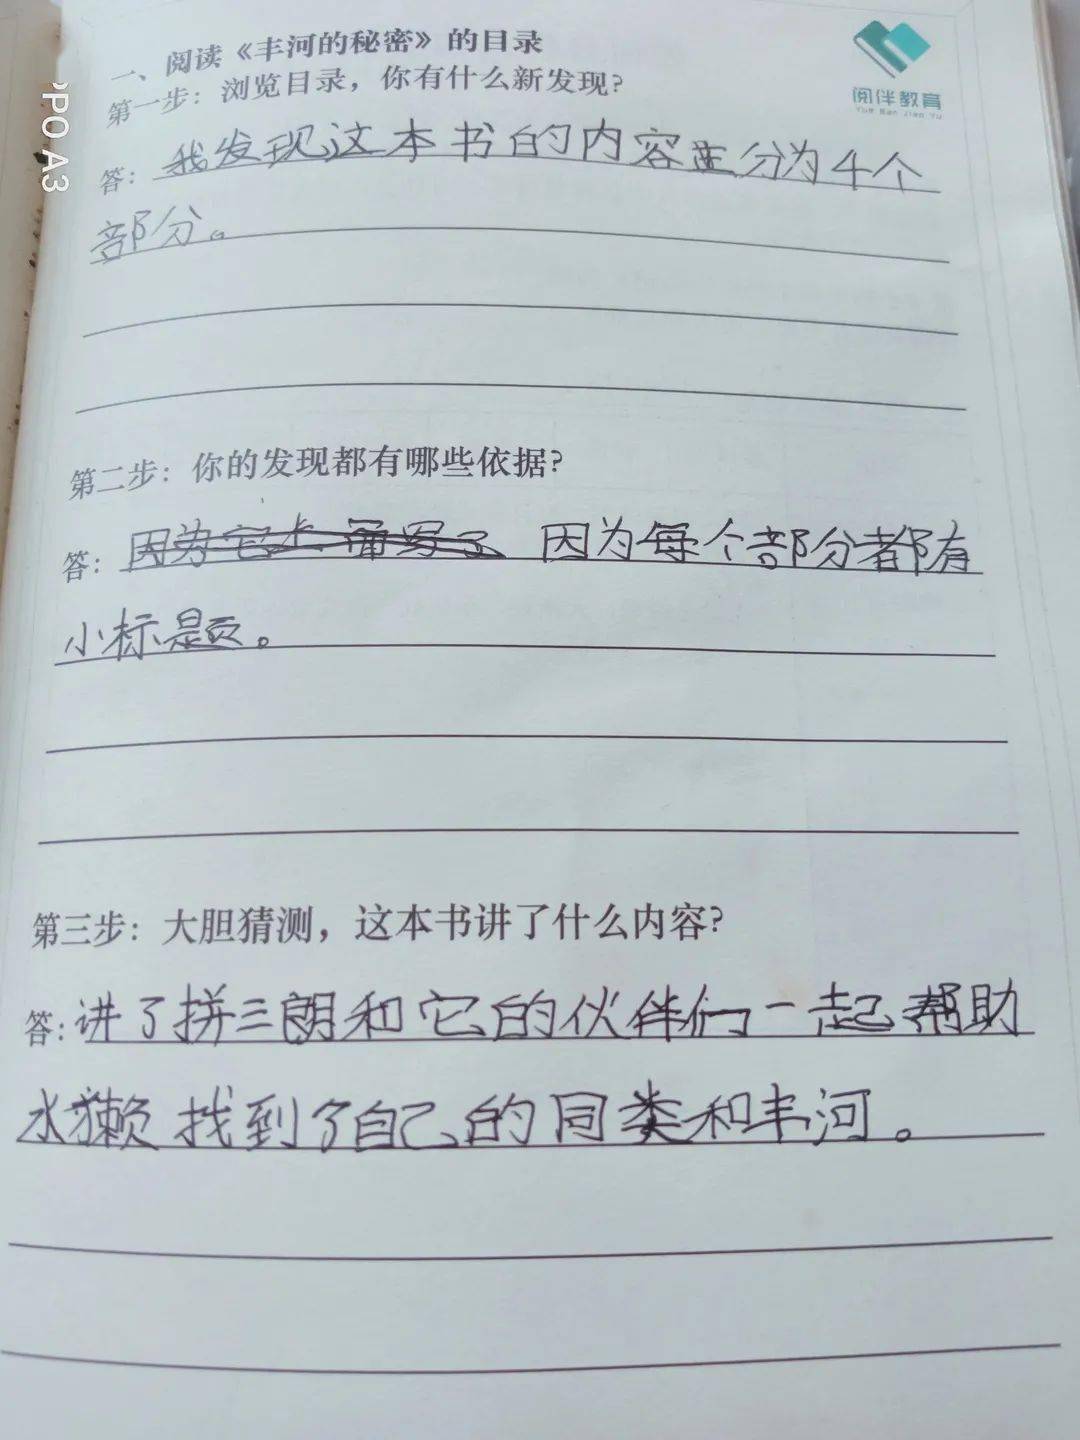 一、阅读《丰河的秘密》的目录
阅伴教育
Yue Ban Jiao Yu
第一步：浏览目录，你有什么新发现？
答：我发现这本书的内容分为4个
部分。
第二步：你的发现都有哪些依据？
答：因为每个部分都有
小标题。
第三步：大胆猜测，这本书讲了什么内容？
答：讲了拼三朗和它的伙伴们一起帮助
水獭找到了自己的同类和丰河。
PO A3